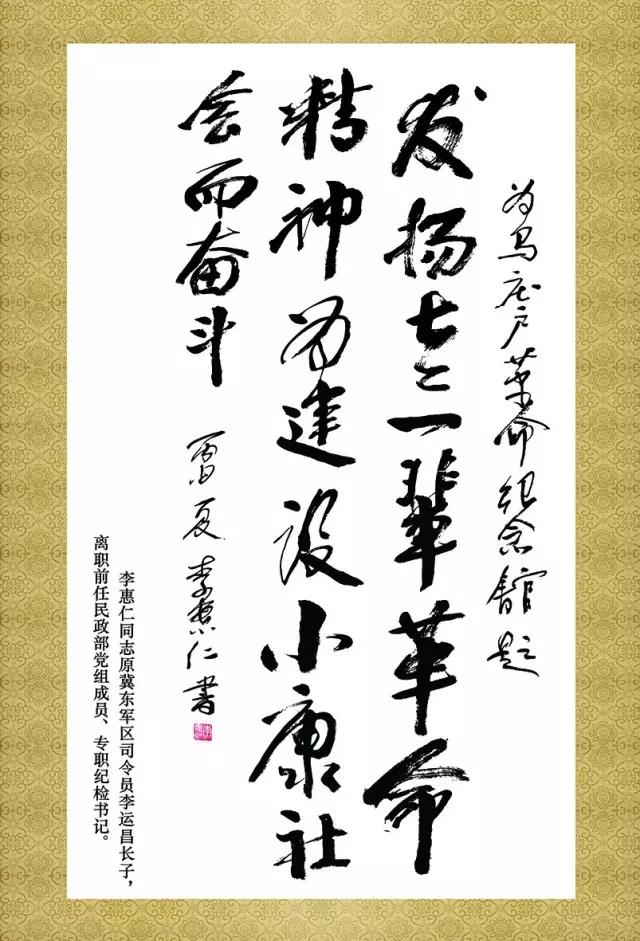 为马庄户革命纪念館题
发扬老一辈革命
精神为建设小康社
会而奋斗
丙申夏 李惠仁書
李惠仁同志原冀东军区司令员李运昌长子，
离职前任民政部党组成员、专职纪检书记。